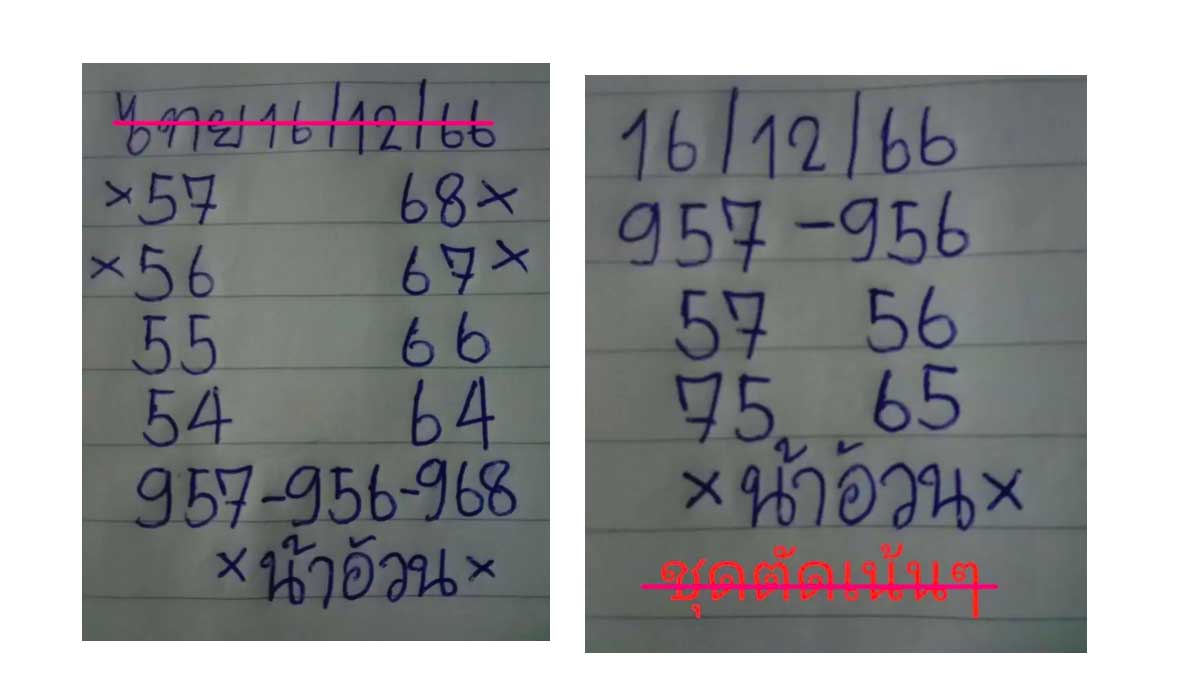 นู๋ทาย 16/12/66
×57 68×
×56 67×
55 66
54 64
957-956-968
×น้าอ้วน×
16/12/66
957-956
57 56
75 65
×น้าอ้วน×
ชุดตัดเน้นๆ